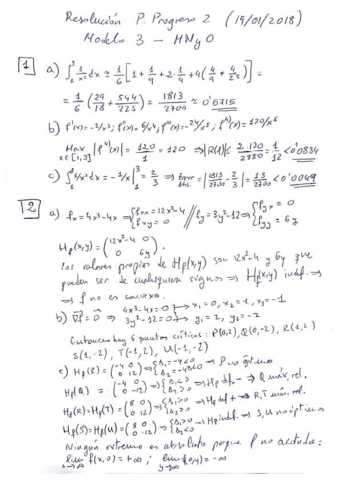 Resolución P. Progreso 2 (19/01/2018)
Modelo 3 — HNyO
1 a) ∫₁³ 1/x² dx ≃ 1/6 [1 + 1/9 + 2·1/4 + 4(4/9 + 4/25)] =
= 1/6 (29/18 + 544/225) = 1813/2700 ≃ 0'6715
b) f'(x) = -2/x³; f''(x) = 6/x⁴; f'''(x) = -24/x⁵; f⁽⁴⁾(x) = 120/x⁶
Max x∈[1,3] |f⁽⁴⁾(x)| = 120/1 = 120 ⇒ |R(f)| ≤ 2·120/2880 = 1/12 < 0'0834
c) ∫₁³ 1/x² dx = -1/x]₁³ = 2/3 ⇒ Error Abs. = |1813/2700 - 2/3| = 13/2700 < 0'0049
2 a) fx = 4x³-4x ⇒ {fxx = 12x²-4 fxy = 0; fy = 3y²-12 ⇒ {fyx = 0 fyy = 6y
Hf(x,y) = (12x²-4 0 0 6y).
Los valores propios de Hf(x,y) son 12x²-4 y 6y que
pueden ser de cualquiera signos ⇒ Hf(x,y) indef. ⇒
⇒ f no es convexa.
b) ∇f = 0 ⇒ 4x³-4x = 0 → x₁=0, x₂=1, x₃=-1
3y²-12=0 → y₁=2, y₂=-2
Entonces hay 6 puntos críticos: P(0,2), Q(0,-2), R(1,2)
S(1,-2), T(-1,2), U(-1,-2)
c) Hf(P) = (-4 0 0 12) ⇒ {Δ₁=-4<0 Δ₂=-48<0 ⇒ P no óptimo
Hf(Q) = (-4 0 0 -12) ⇒ {Δ₁<0 Δ₂>0 ⇒ Hf def. - ⇒ Q máx. rel.
Hf(R)=Hf(T) = (8 0 0 12) ⇒ {Δ₁>0 Δ₂>0 ⇒ Hf def + ⇒ R,T mín. rel.
Hf(S)=Hf(U) = (8 0 0 -12) ⇒ {Δ₁>0 Δ₂<0 ⇒ Hf indef. ⇒ S,U no óptimos
Ningún extremo es absoluto porque f no acotada:
lim x→∞ f(x,0) = +∞; lim y→-∞ f(0,y) = -∞